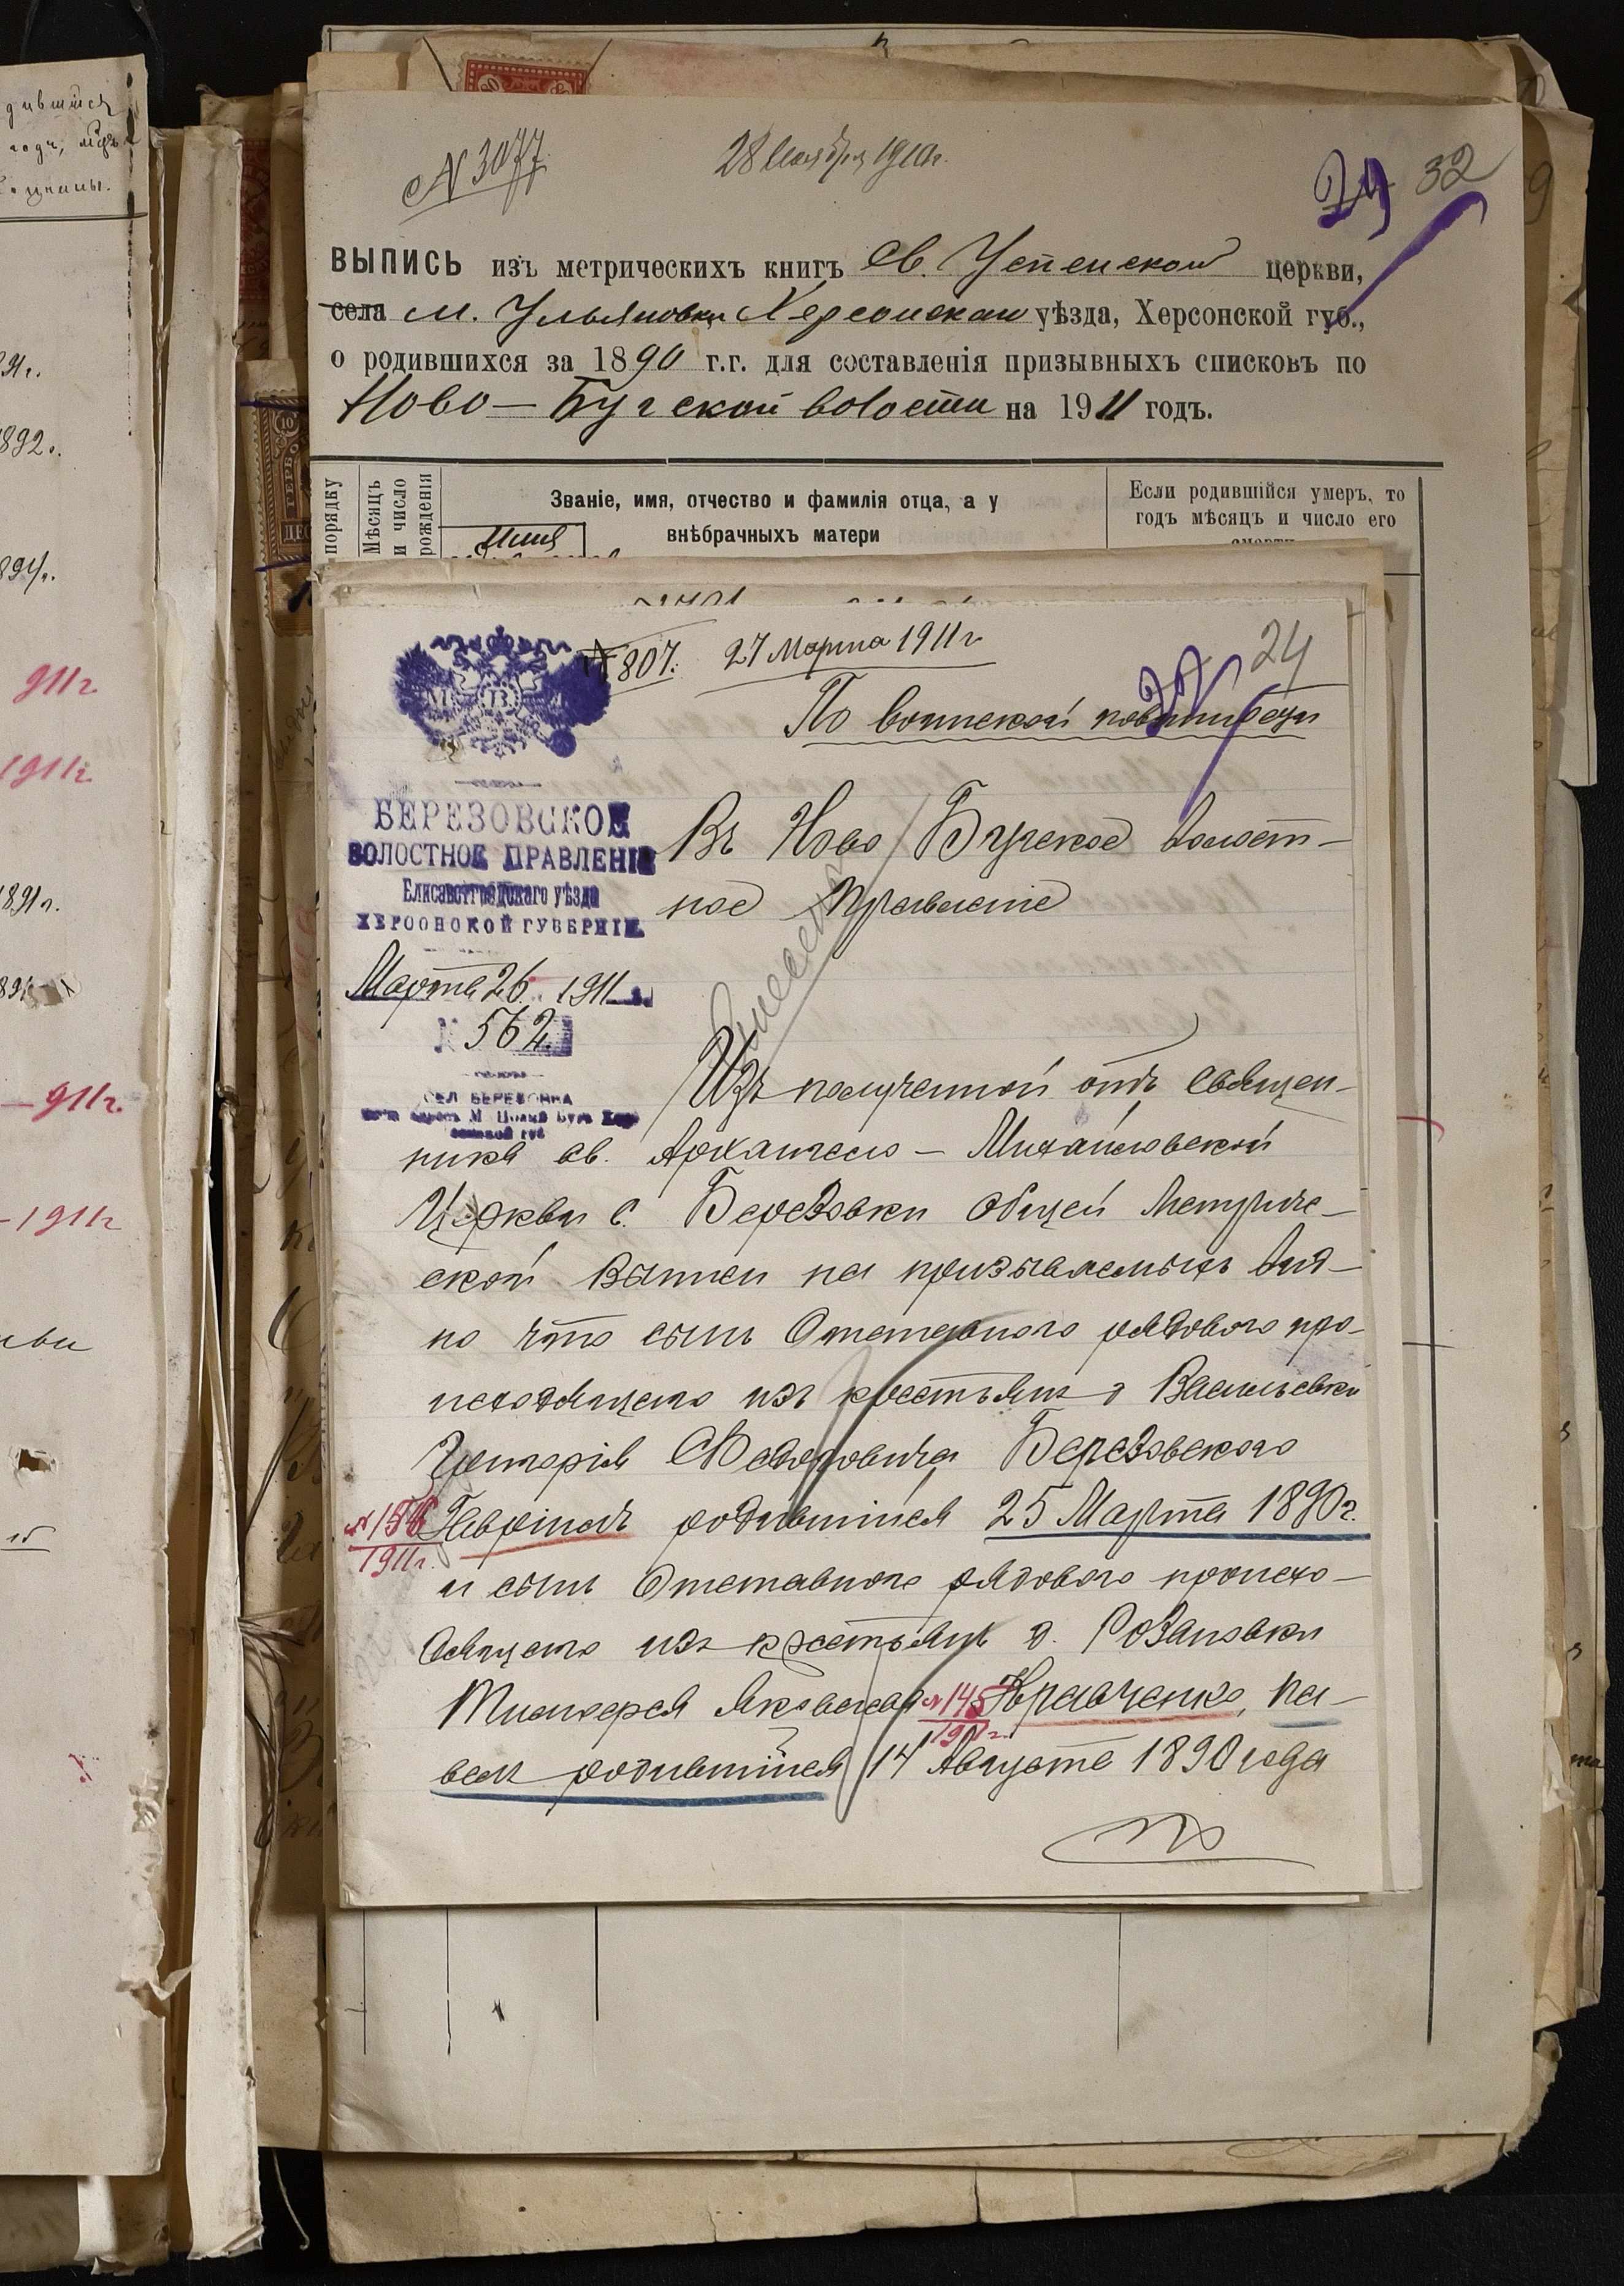 дившійся
годъ, мѣр
891г.
1892г.
1894г.
911г.
1911г.
1891г.
911г.
-1911г
№ 3077
28 Ноября 1910г.
29 32
ВЫПИСЬ изъ метрическихъ книгъ Св. Успенской церкви,
села м. Ульяновки Херсонскаго уѣзда, Херсонской губ.,
о родившихся за 1890 г.г. для составленія призывныхъ списковъ по
Ново-Бугской волости на 1911 годъ.
порядку
Мѣсяцъ
и число
рожденія
Имя
Званіе, имя, отчество и фамилія отца, а у
внѣбрачныхъ матери
Если родившійся умеръ, то
годъ мѣсяцъ и число его
смерти
№ 807. 27 Марта 1911г
24
По воинской повинности
М В
БЕРЕЗОВСКОЕ
ВОЛОСТНОЕ ПРАВЛЕНІЕ
Елисаветградскаго уѣзда
ХЕРСОНСКОЙ ГУБЕРНІИ
Марта 26 1911 г.
№ 562
СЕЛ БЕРЕЗОВКА
Въ Ново Бугское волост-
ное Правленіе
Изъ полученной отъ священ-
ника св. Архангело-Михайловской
Церкви с. Березовки общей метриче-
ской выписи на призываемыхъ вид-
но что сынъ Отставного рядового про-
исходящего изъ крестьянъ д Васильевки
Григорія Федоровича Березовскаго
№ 156
1911г.
Гавріилъ родившійся 25 Марта 1890г.
и сынъ Отставного рядового происхо-
дящего изъ крестьянъ д. Розановки
Тимофея Яковлева № 145
1911г.
Кравченко, Па-
велъ родившійся 14 Августа 1890 года